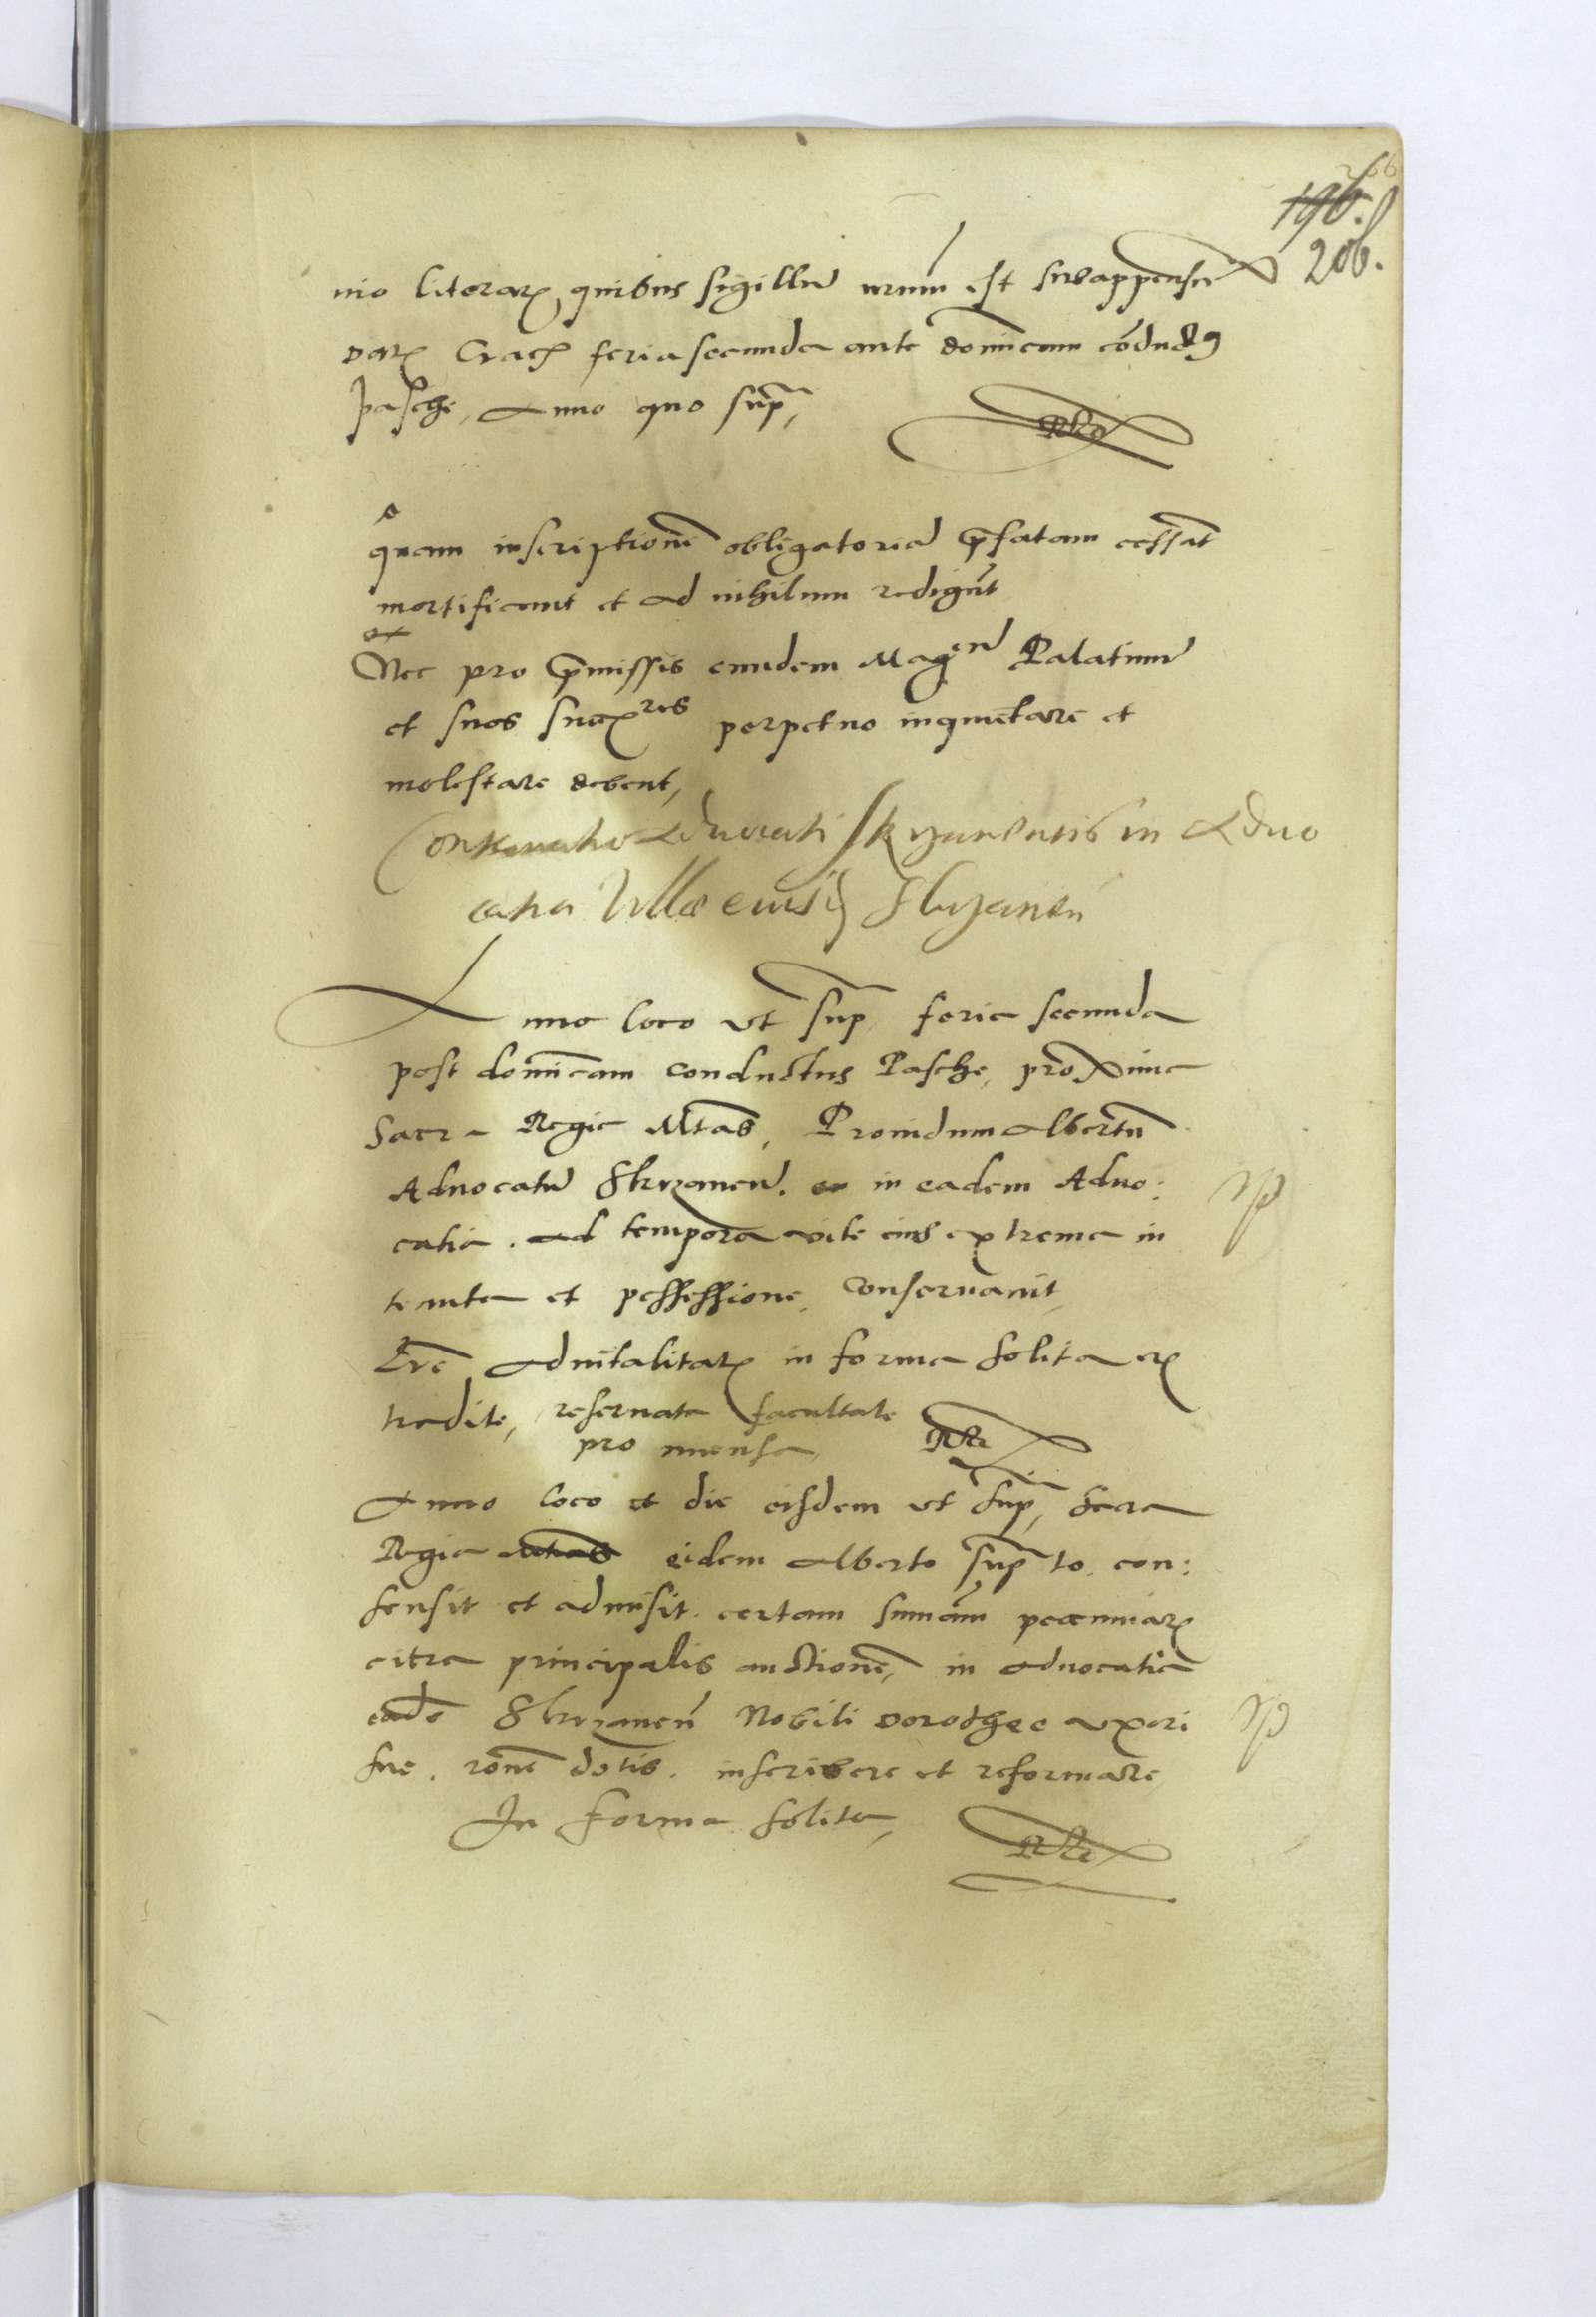 266
196.
206.
nio literarꝫ, quibus sigillũ nrum̃ est subappensũ
Datꝫ Cracꝫ feria secunda ante dominicam cõduct9
Pasche, Anno quo sup̃,
RRs
quam inscriptionẽ obligatoriã p̃fatam cessãt
mortificant et ad nihilum redigũt
Nec pro p̃missis eundem Mag^cũ Palatinũ
et suos succ^res perpetuo inquietare et
molestare debent,
Conservatio Advocati Skrzynensis in Advo
catia Villae eiusdẽ Skrzynen̄
Anno loco vt sup̃ feria secunda
post dominicam conductus Pasche, proxima
Sacra Regia Mtas̃, Prouidum Albertũ
Aduocatũ Skrzynen̄. in eadem Aduo:
catia. ad tempora vite eius extrema in
tenuta et possessione, conseruauit,
Lr̃e aduitalitatꝫ in forma solita exꝫ
tradite, reseruata facultate
pro mensa, RRs
Anno loco et die eisdem vt sup̃, Sacra
Regia Mtas eidem Alberto sup̃to. con:
sensit et admisit. certam summãm pecuniarꝫ
citra principalis auctionẽ, in aduocatia
eadẽ Skrzynen̄ Nobili Dorothee vxori
sue. rõne dotis. inscribere et reformare,
In forma solita,
RRs